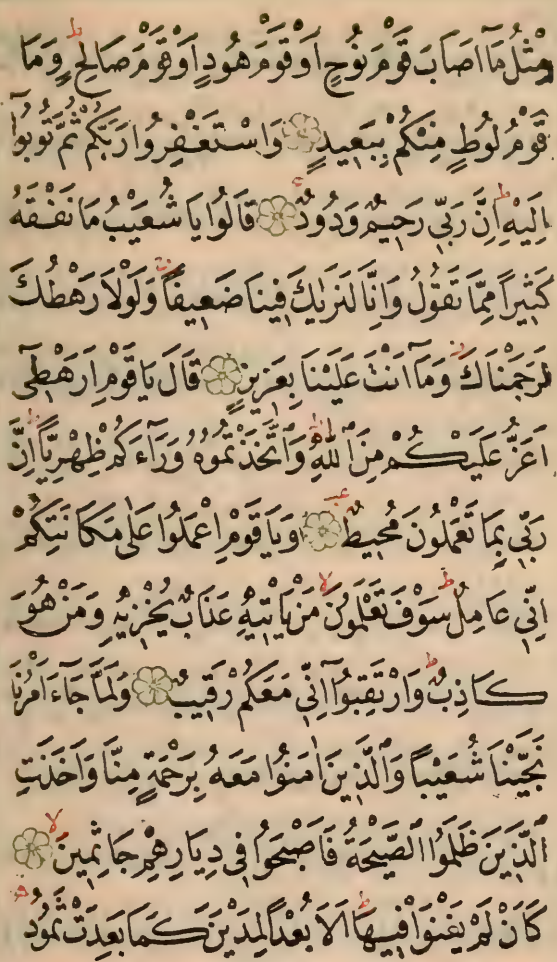 مِثْلُ مَٓا اَصَابَ قَوْمَ نُوحٍ اَوْ قَوْمَ هُودٍ اَوْ قَوْمَ صَالِحٍ ط وَمَا
قَوْمُ لُوطٍ مِنْكُمْ بِبَعِيدٍ وَاسْتَغْفِرُوا رَبَّكُمْ ثُمَّ تُوبُٓوا
اِلَيْهِ ط اِنَّ رَبِّى رَحِيمٌ وَدُودٌ قَالُوا يَا شُعَيْبُ مَا نَفْقَهُ
كَثِيرًا مِمَّا تَقُولُ وَاِنَّا لَنَرٰيكَ فِينَا ضَعِيفًا وَلَوْلَا رَهْطُكَ
لَرَجَمْنَاكَ وَمَٓا اَنْتَ عَلَيْنَا بِعَزِيزٍ قَالَ يَا قَوْمِ اَرَهْطِٓى
اَعَزُّ عَلَيْكُمْ مِنَ اللّٰهِ ط وَاتَّخَذْتُمُوهُ وَرَٓاءَكُمْ ظِهْرِيًّا ط اِنَّ
رَبِّى بِمَا تَعْمَلُونَ مُحِيطٌ وَيَا قَوْمِ اعْمَلُوا عَلٰى مَكَانَتِكُمْ
اِنِّى عَامِلٌ ط سَوْفَ تَعْلَمُونَ لا مَنْ يَاْتِيهِ عَذَابٌ يُخْزِيهِ وَمَنْ هُوَ
كَاذِبٌ ط وَارْتَقِبُٓوا اِنِّى مَعَكُمْ رَقِيبٌ وَلَمَّا جَٓاءَ اَمْرُنَا
نَجَّيْنَا شُعَيْبًا وَالَّذِينَ اٰمَنُوا مَعَهُ بِرَحْمَةٍ مِنَّا وَاَخَذَتِ
الَّذِينَ ظَلَمُوا الصَّيْحَةُ فَاَصْبَحُوا فِى دِيَارِهِمْ جَاثِمِينَ لا
كَاَنْ لَمْ يَغْنَوْا فِيهَا ط اَلَا بُعْدًا لِمَدْيَنَ كَمَا بَعِدَتْ ثَمُودُ